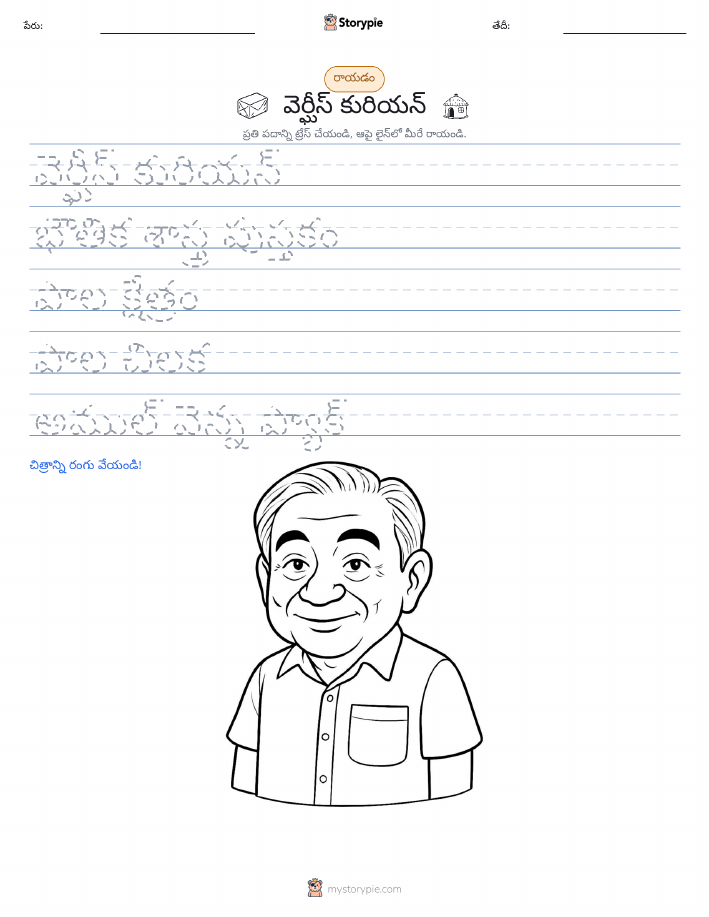 పేరు:
Storypie
తేదీ:
రాయడం
వెర్ఘీస్ కురియన్
ప్రతి పదాన్ని ట్రేస్ చేయండి, ఆపై లైన్‌లో మీరే రాయండి.
వెర్ఘీస్ కురియన్
భౌతిక శాస్త్ర పుస్తకం
పాల క్షేత్రం
పాల చిలక
అముల్ వెన్న ప్యాక్
చిత్రాన్ని రంగు వేయండి!
mystorypie.com